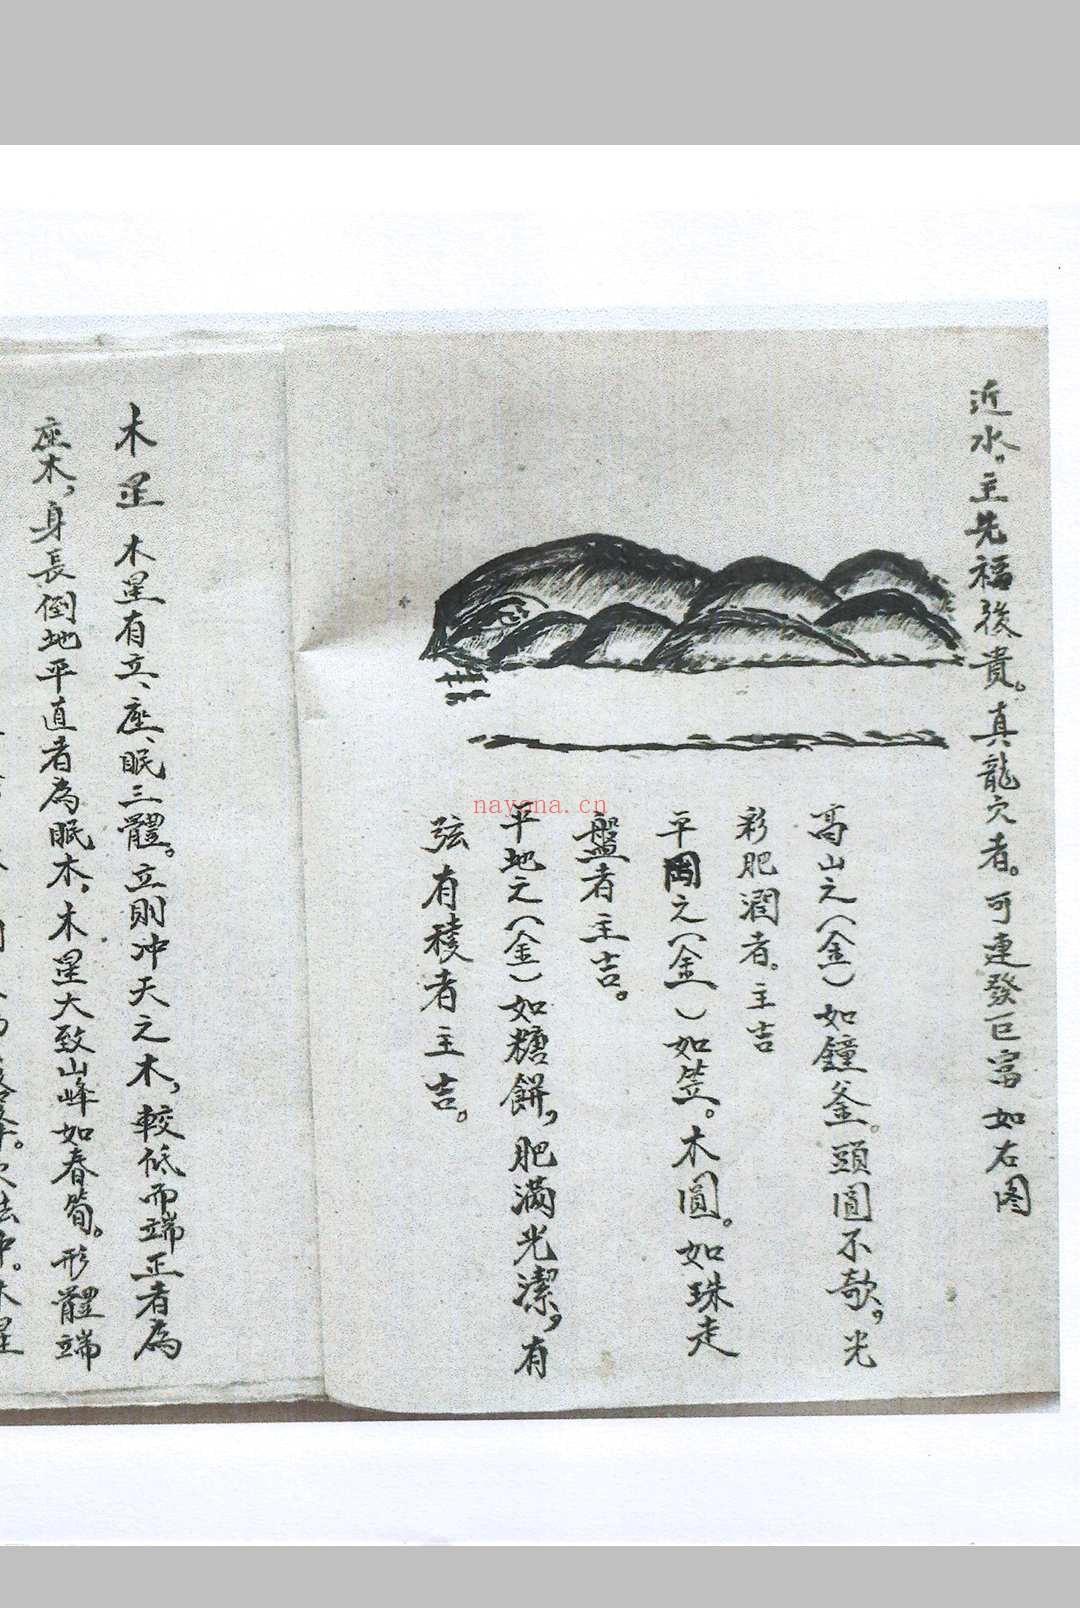 近水。主先福後貴。真龍穴者。可連發巨富如右图
高山之(金)如鐘釜。頭圓不欹,光
彩肥潤者。主吉
平岡之(金)如笠。木圓。如珠走
盤者主吉。
平地之(金)如糖餅,肥滿光潔,有
弦有稜者主吉。
木星 木星有立、座、眠三體。立則冲天之木,較低而端正者為
座木,身長倒地平直者為眠木。木星大致山峰如春筍。形體端
nayona.cn